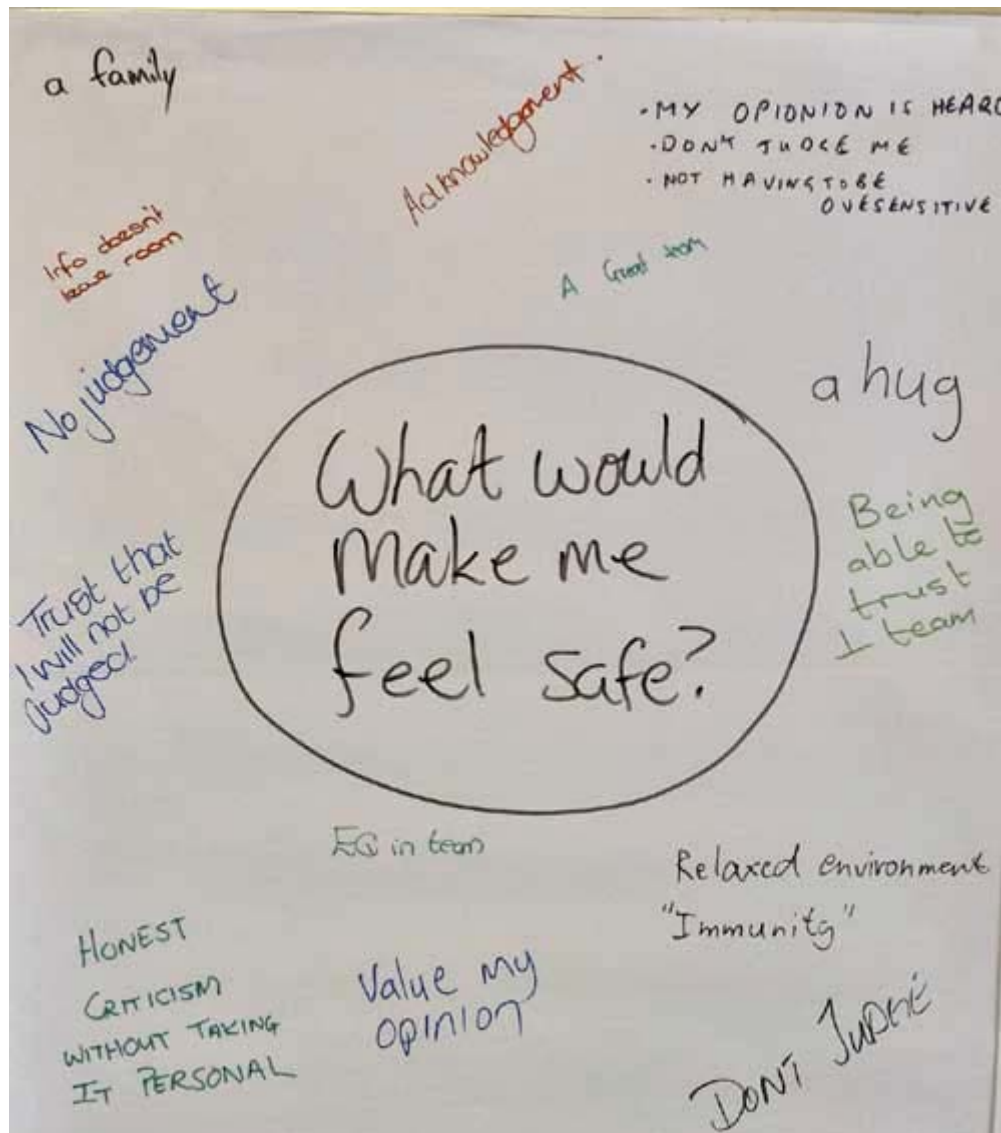 a family
Acknowledgment.
• MY OPIONION IS HEARD
• DON'T JUDGE ME
• NOT HAVING TO BE
OVESENSITIVE
Info doesn't
leave room
A Great team
No judgement
a hug
What would
make me
feel safe?
Being
able to
trust
team
Trust that
I will not be
judged.
EQ in team
Relaxed environment
"Immunity"
HONEST
CRITICISM
WITHOUT TAKING
IT PERSONAL
Value my
opinion
DONT JUDGE